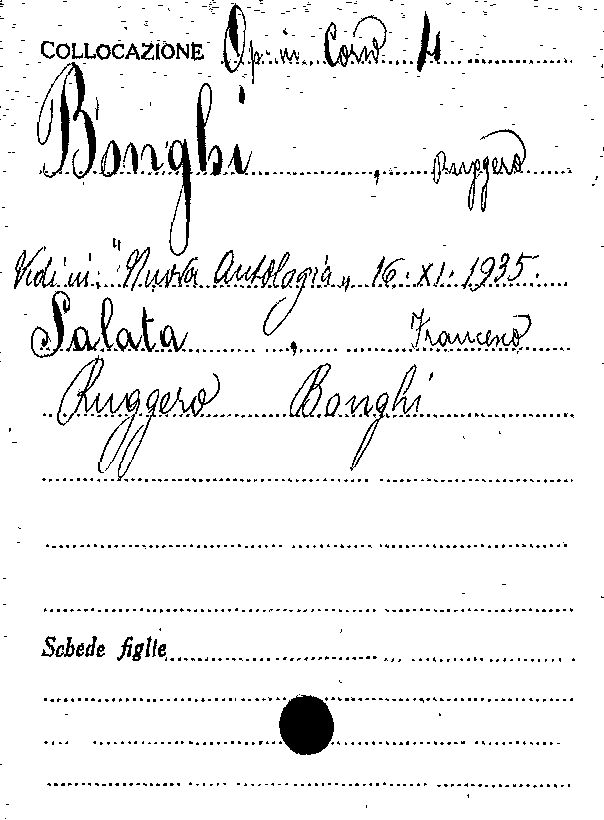 COLLOCAZIONE Op. in Corso 4
Bonghi, Ruggero
Vedi in: "Nuova Antologia„ 16. XI. 1935.
Salata, Francesco
Ruggero Bonghi
Schede figlie